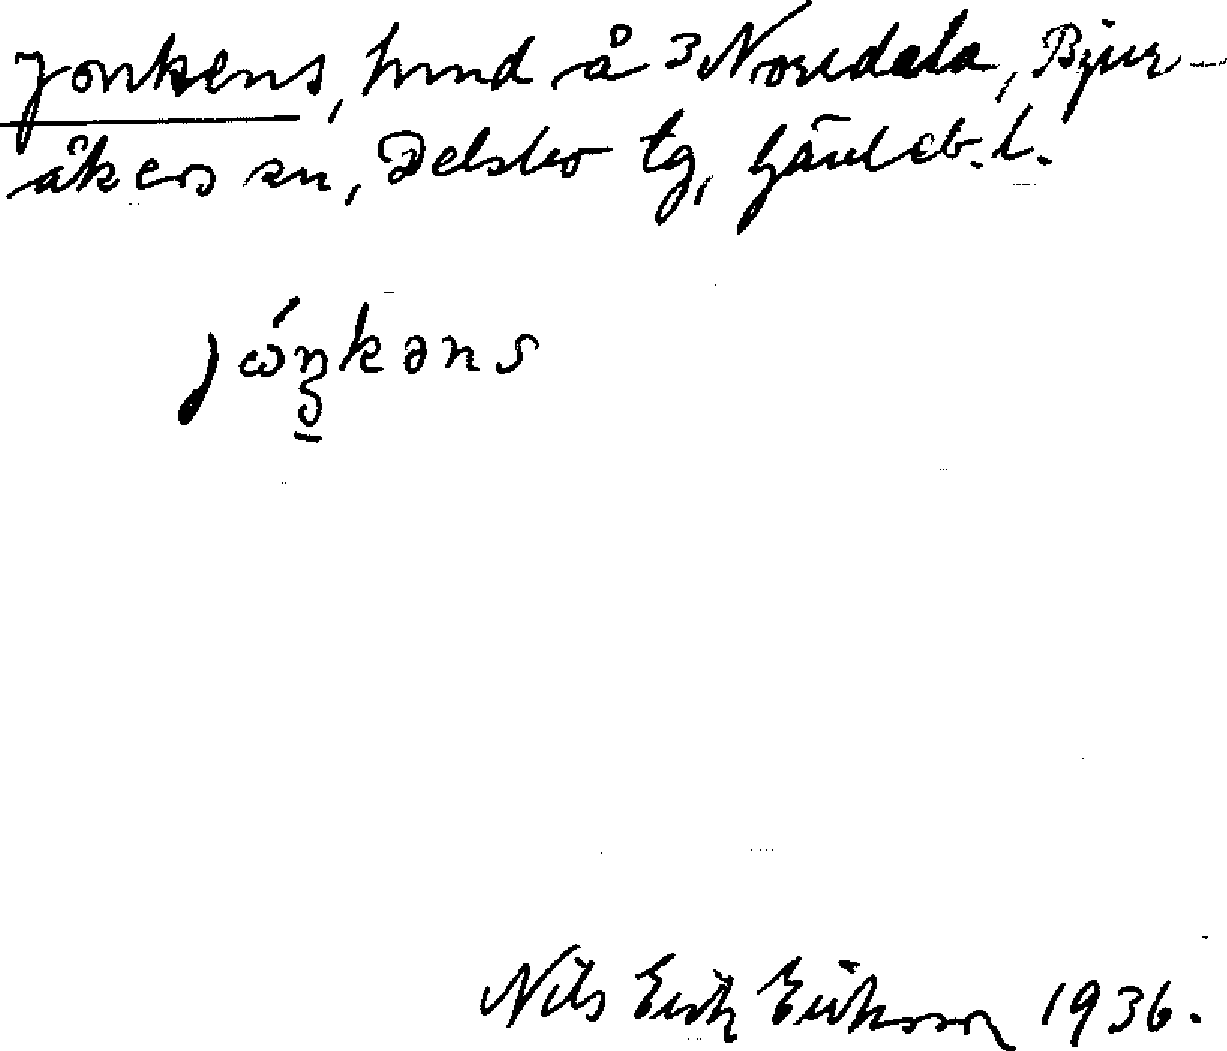 Jonkens, hmd å 3 Norrdala, Bjur-
åkers sn, Delsbo tg, Gävleb. l.
jώŋkəns
Nils Erik Eriksson 1936.